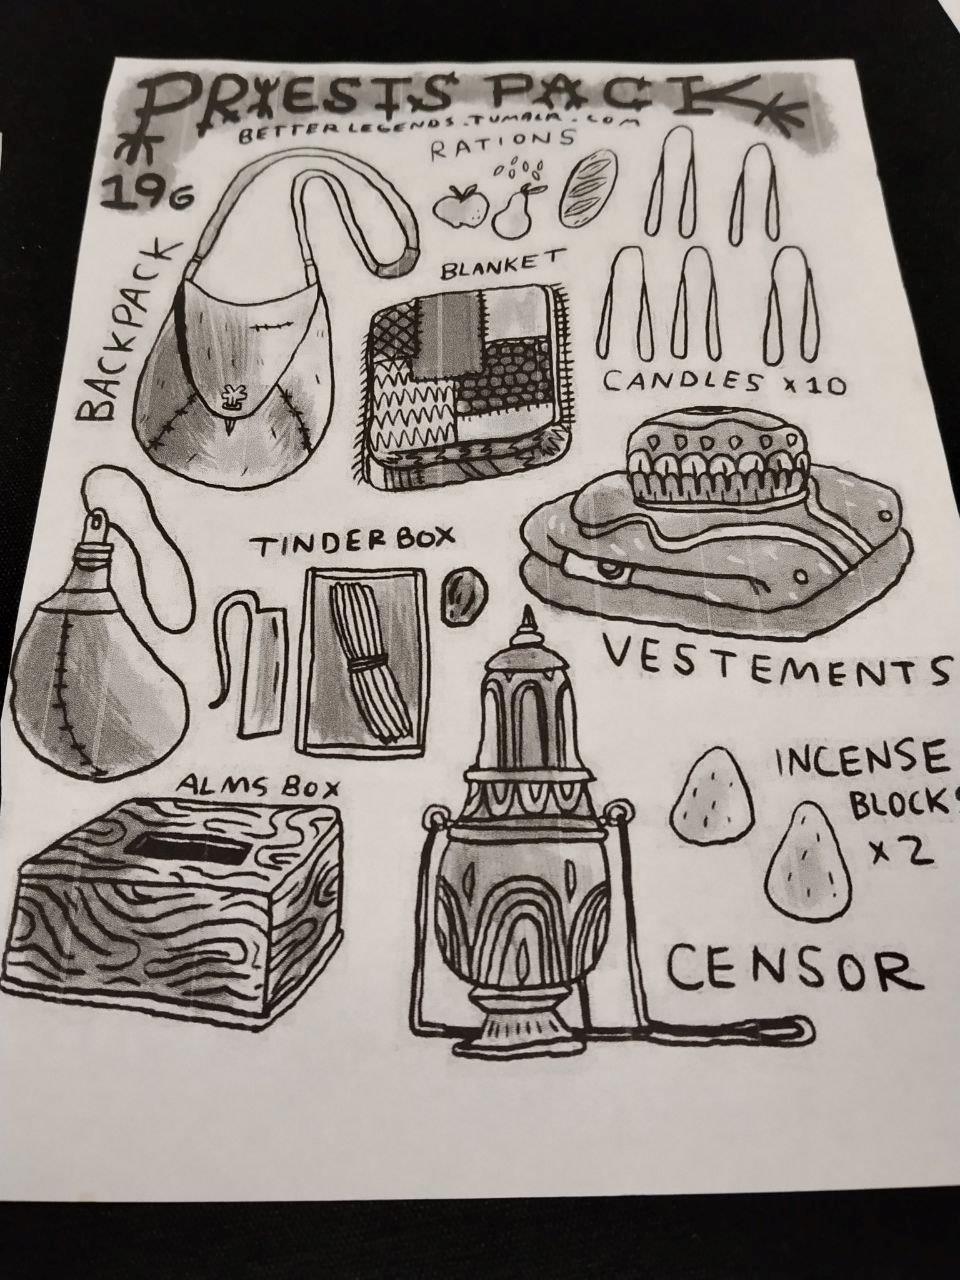 PRIESTS PACK
BETTERLEGENDS.TUMBLR.COM
19G
RATIONS
BACKPACK
BLANKET
CANDLES x10
TINDERBOX
VESTEMENTS
ALMS BOX
INCENSE
BLOCKS
x2
CENSOR